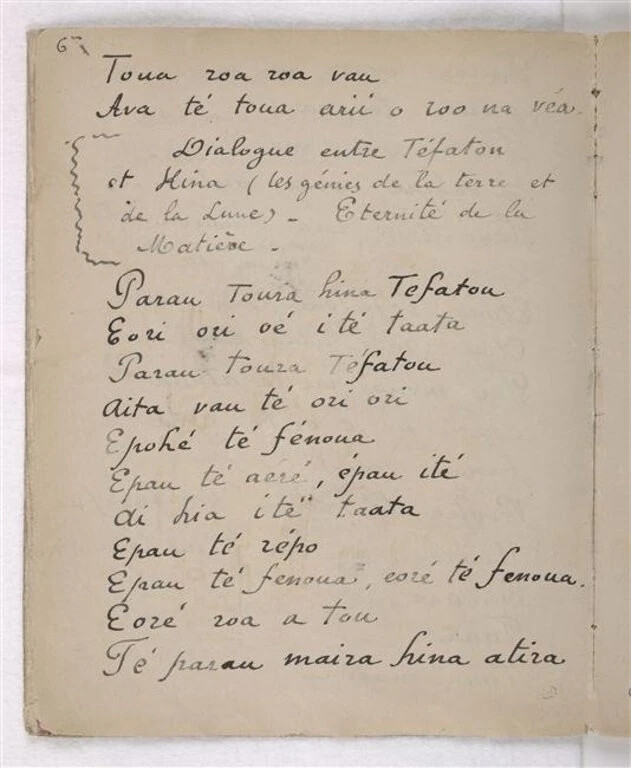 6
Toua roa roa vau
Ava té toua arii o roo na véa.
Dialogue entre Téfatou
et Hina (les génies de la terre et
de la Lune) - Eternité de la
Matière -
Parau Toura hina Tefatou
Eori ori oé i té taata
Parau toura Téfatou
Aita vau té ori ori
Epohé té fénoua
Epau té aéré, épau ité
ai hia i té taata
Epau té répo
Epau té fenoua, eoré té fenoua.
Eoré roa a tou
Té parau maira hina atira